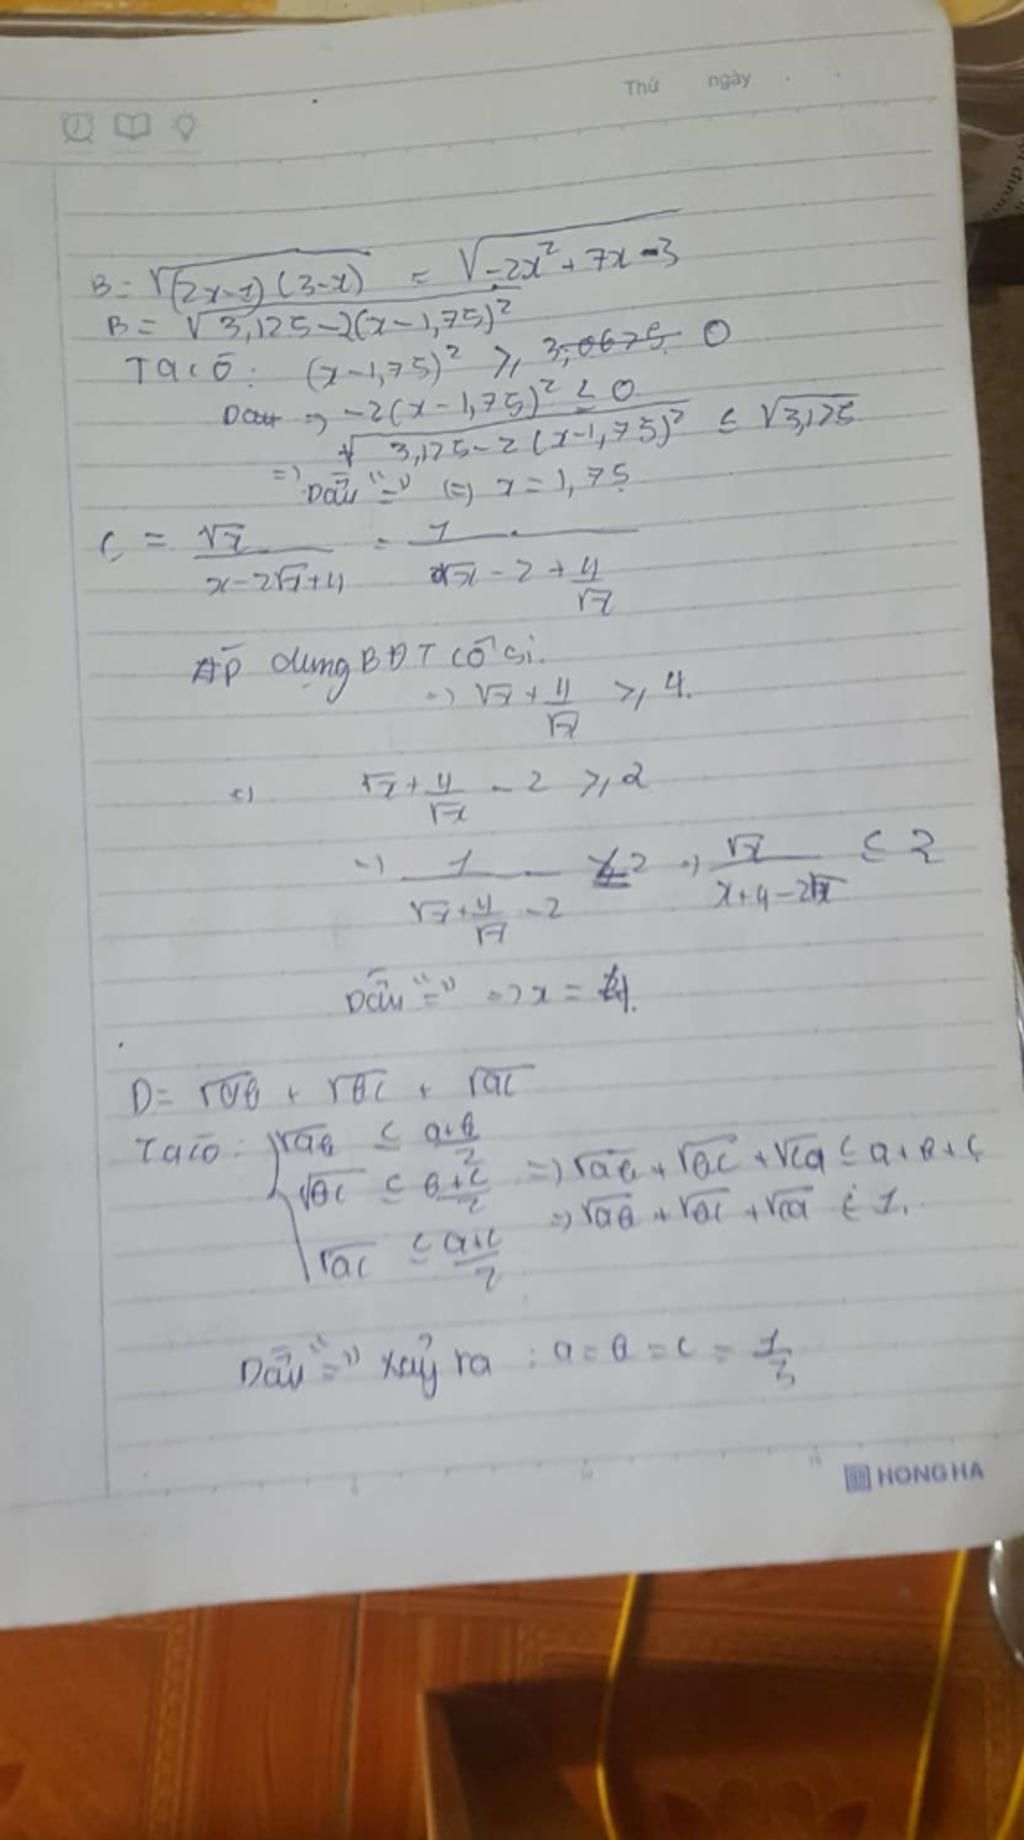 Thứ ngày
B = √(2x-1)(3-x) = √-2x² + 7x - 3
B = √3,125-2(x-1,75)²
Ta có: (x-1,75)² ≥ 0
⇒ -2(x-1,75)² ≤ 0
√3,125-2(x-1,75)² ≤ √3,125
⇒ Dấu "=" ⇔ x = 1,75
C = √x / (x-2√x+4) = 1 / (√x - 2 + 4/√x)
Áp dụng BĐT cô si.
⇒ √x + 4/√x ≥ 4.
⇔ √x + 4/√x - 2 ≥ 2
⇒ 1 / (√x + 4/√x - 2) ≤ 2 ⇒ √x / (x+4-2√x) ≤ 2
Dấu "=" ⇒ x = 4.
D = √ab + √bc + √ac
Ta có: √ab ≤ (a+b)/2
√bc ≤ (b+c)/2 ⇒ √ab + √bc + √ca ≤ a+b+c
√ac ≤ (a+c)/2 ⇒ √ab + √bc + √ca ≤ 1.
Dấu "=" xảy ra : a = b = c = 1/3
HONG HA